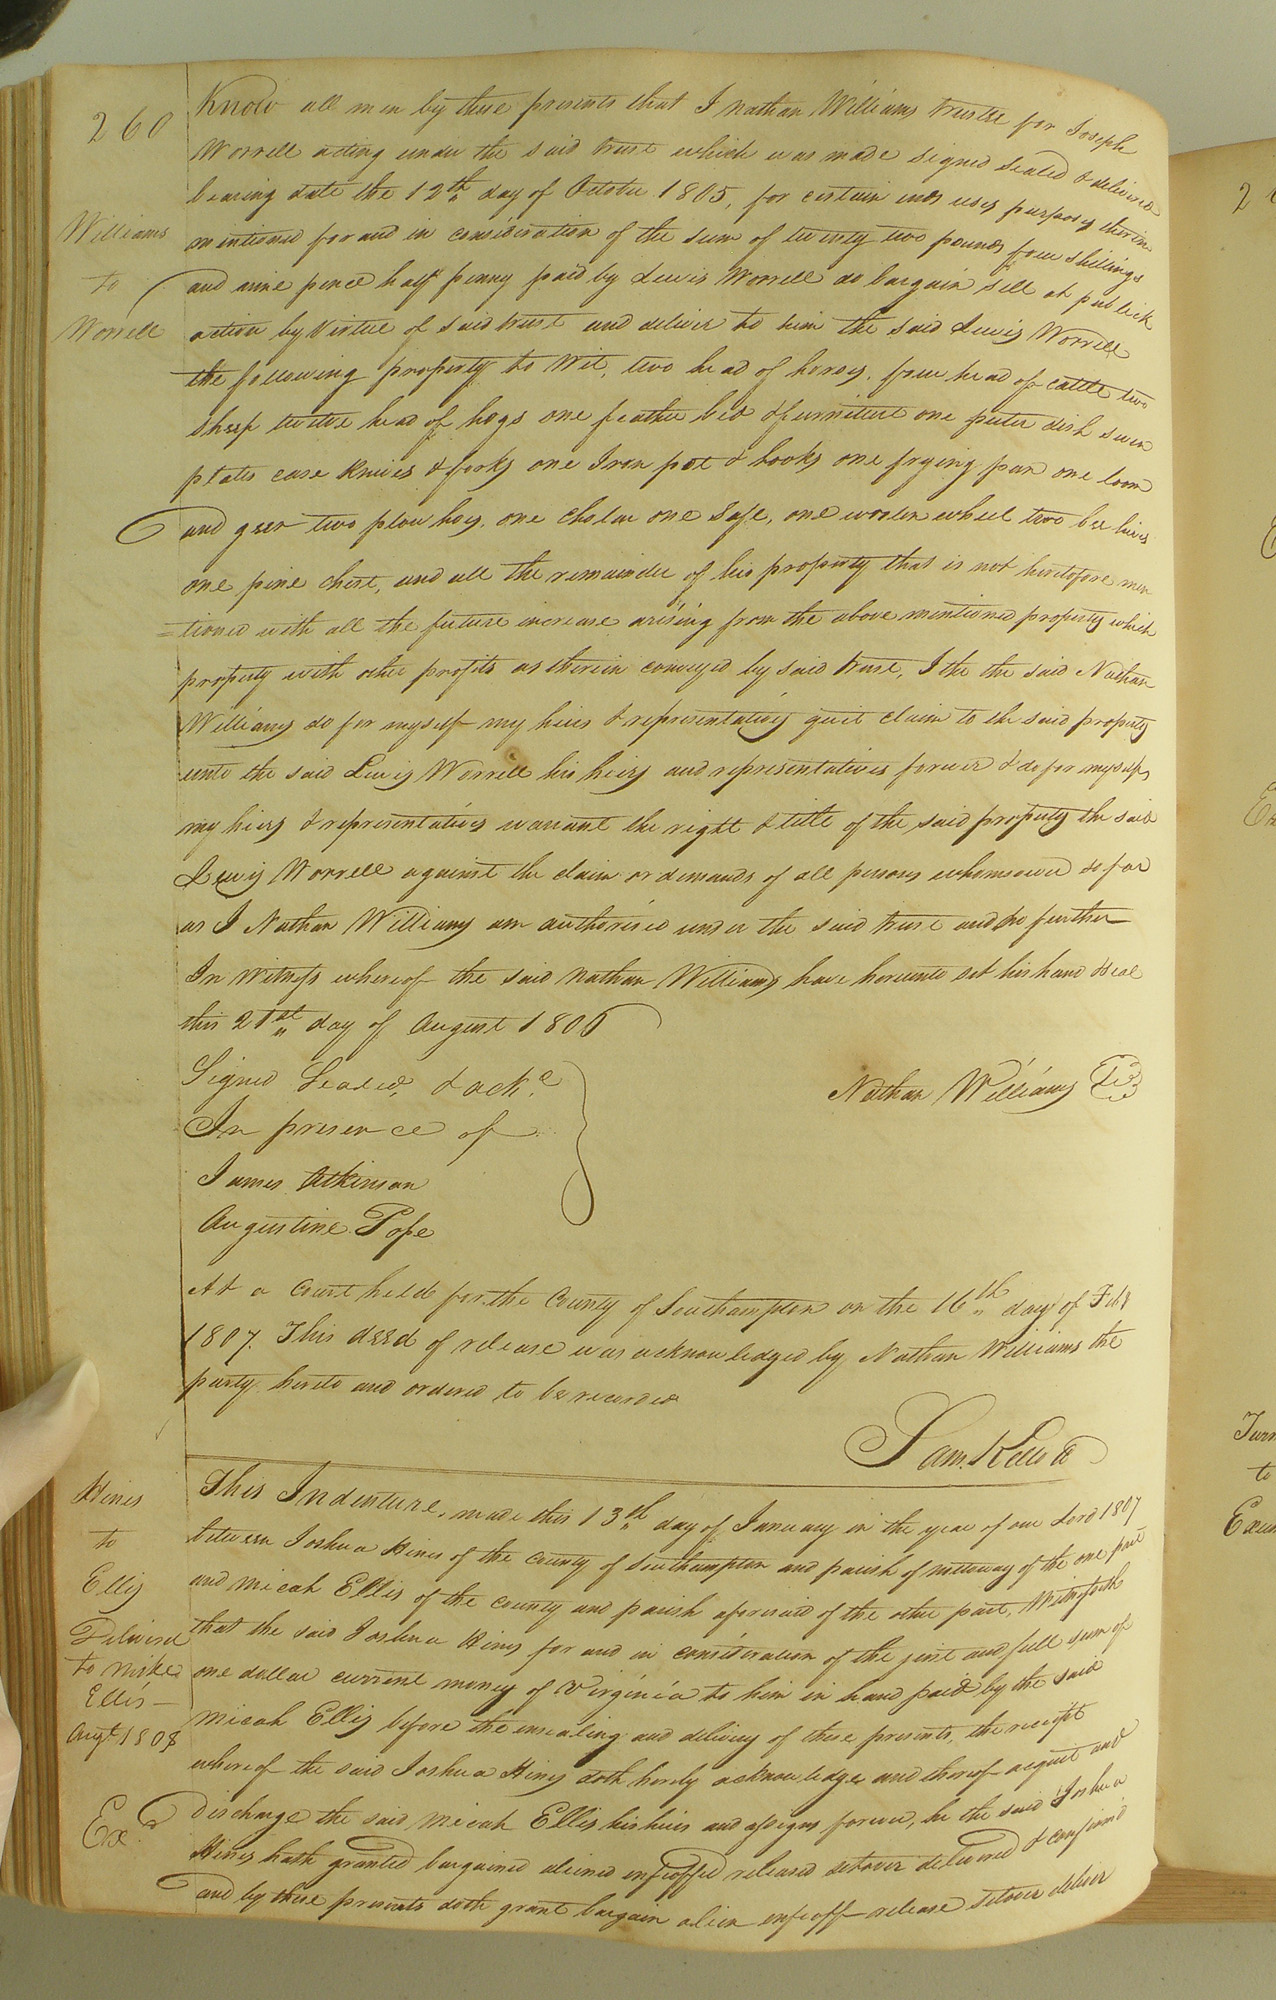 260
Williams
to
Worrell
Know all men by these presents that I Nathan Williams trustee for Joseph
Worrell acting under the said trust which was made signed sealed & delivered
bearing date the 12th day of October 1805, for certain uses purposes therein
mentioned for and in consideration of the sum of twenty two pounds four shillings
and nine pence half penny paid by Lewis Worrell do bargain sell at publick
action by Virtue of said trust and deliver to him the said Lewis Worrell
the following property to Wit, two head of horses, four head of cattle two
sheep twelve head of hogs one feather bed & furniture one puter dish seven
plates case knives & forks one Iron pot & hooks one frying pan one loom
and geer two plow hoes, one one safe, one woolen wheel two bee hives
one pine chest, and all the remainder of his property that is not heretofore men
=tioned with all the future increase arising from the above mentioned property which
property with other profits as therein conveyed by said trust, I the the said Nathan
Williams do for myself my heirs & representatives quit claim to the said property
unto the said Lewis Worrell his heirs and representatives forever & do for myself
my heirs & representatives warrant the right & title of the said property the said
Lewis Worrell against the claim or demands of all persons whomsoever so far
as I Nathan Williams am authorised under the said trust and no further
In Witness whereof the said Nathan Williams have hereunto set his hand & seal
this 21st day of August 1806
Signed Sealed, & ackd.
In presence of
Nathan Williams
James Atkinson
Augustine Pope
At a Court held for the County of Southampton on the 16th day of Feby
1807. This deed of release was acknowledged by Nathan Williams the
party hereto and ordered to be recorded
Sam. Kello
Hines
to
Ellis
Delivered
to
Ellis
Augt 1808
Exd.
This Indenture, made this 13th day of January in the year of our Lord 1807
between Joshua Hines of the County of Southampton and parish of nottoway of the one part
and Micah Ellis of the county and parish aforesaid of the other part, Witnesseth
that the said Joshua Hines for and in consideration of the just and full sum of
one dollar current money of Virginia to him in hand paid by the said
Micah Ellis before the ensealing and delivery of these presents, the receipt
whereof the said Joshua Hines doth hereby acknowledge, and thereof acquit and
discharge the said Micah Ellis his heirs and assigns forever, he the said Joshua
Hines hath granted bargained aliened enfeoffed released setover delivered & confirmd
and by these presents doth grant bargain alien enfeoff release setover deliver